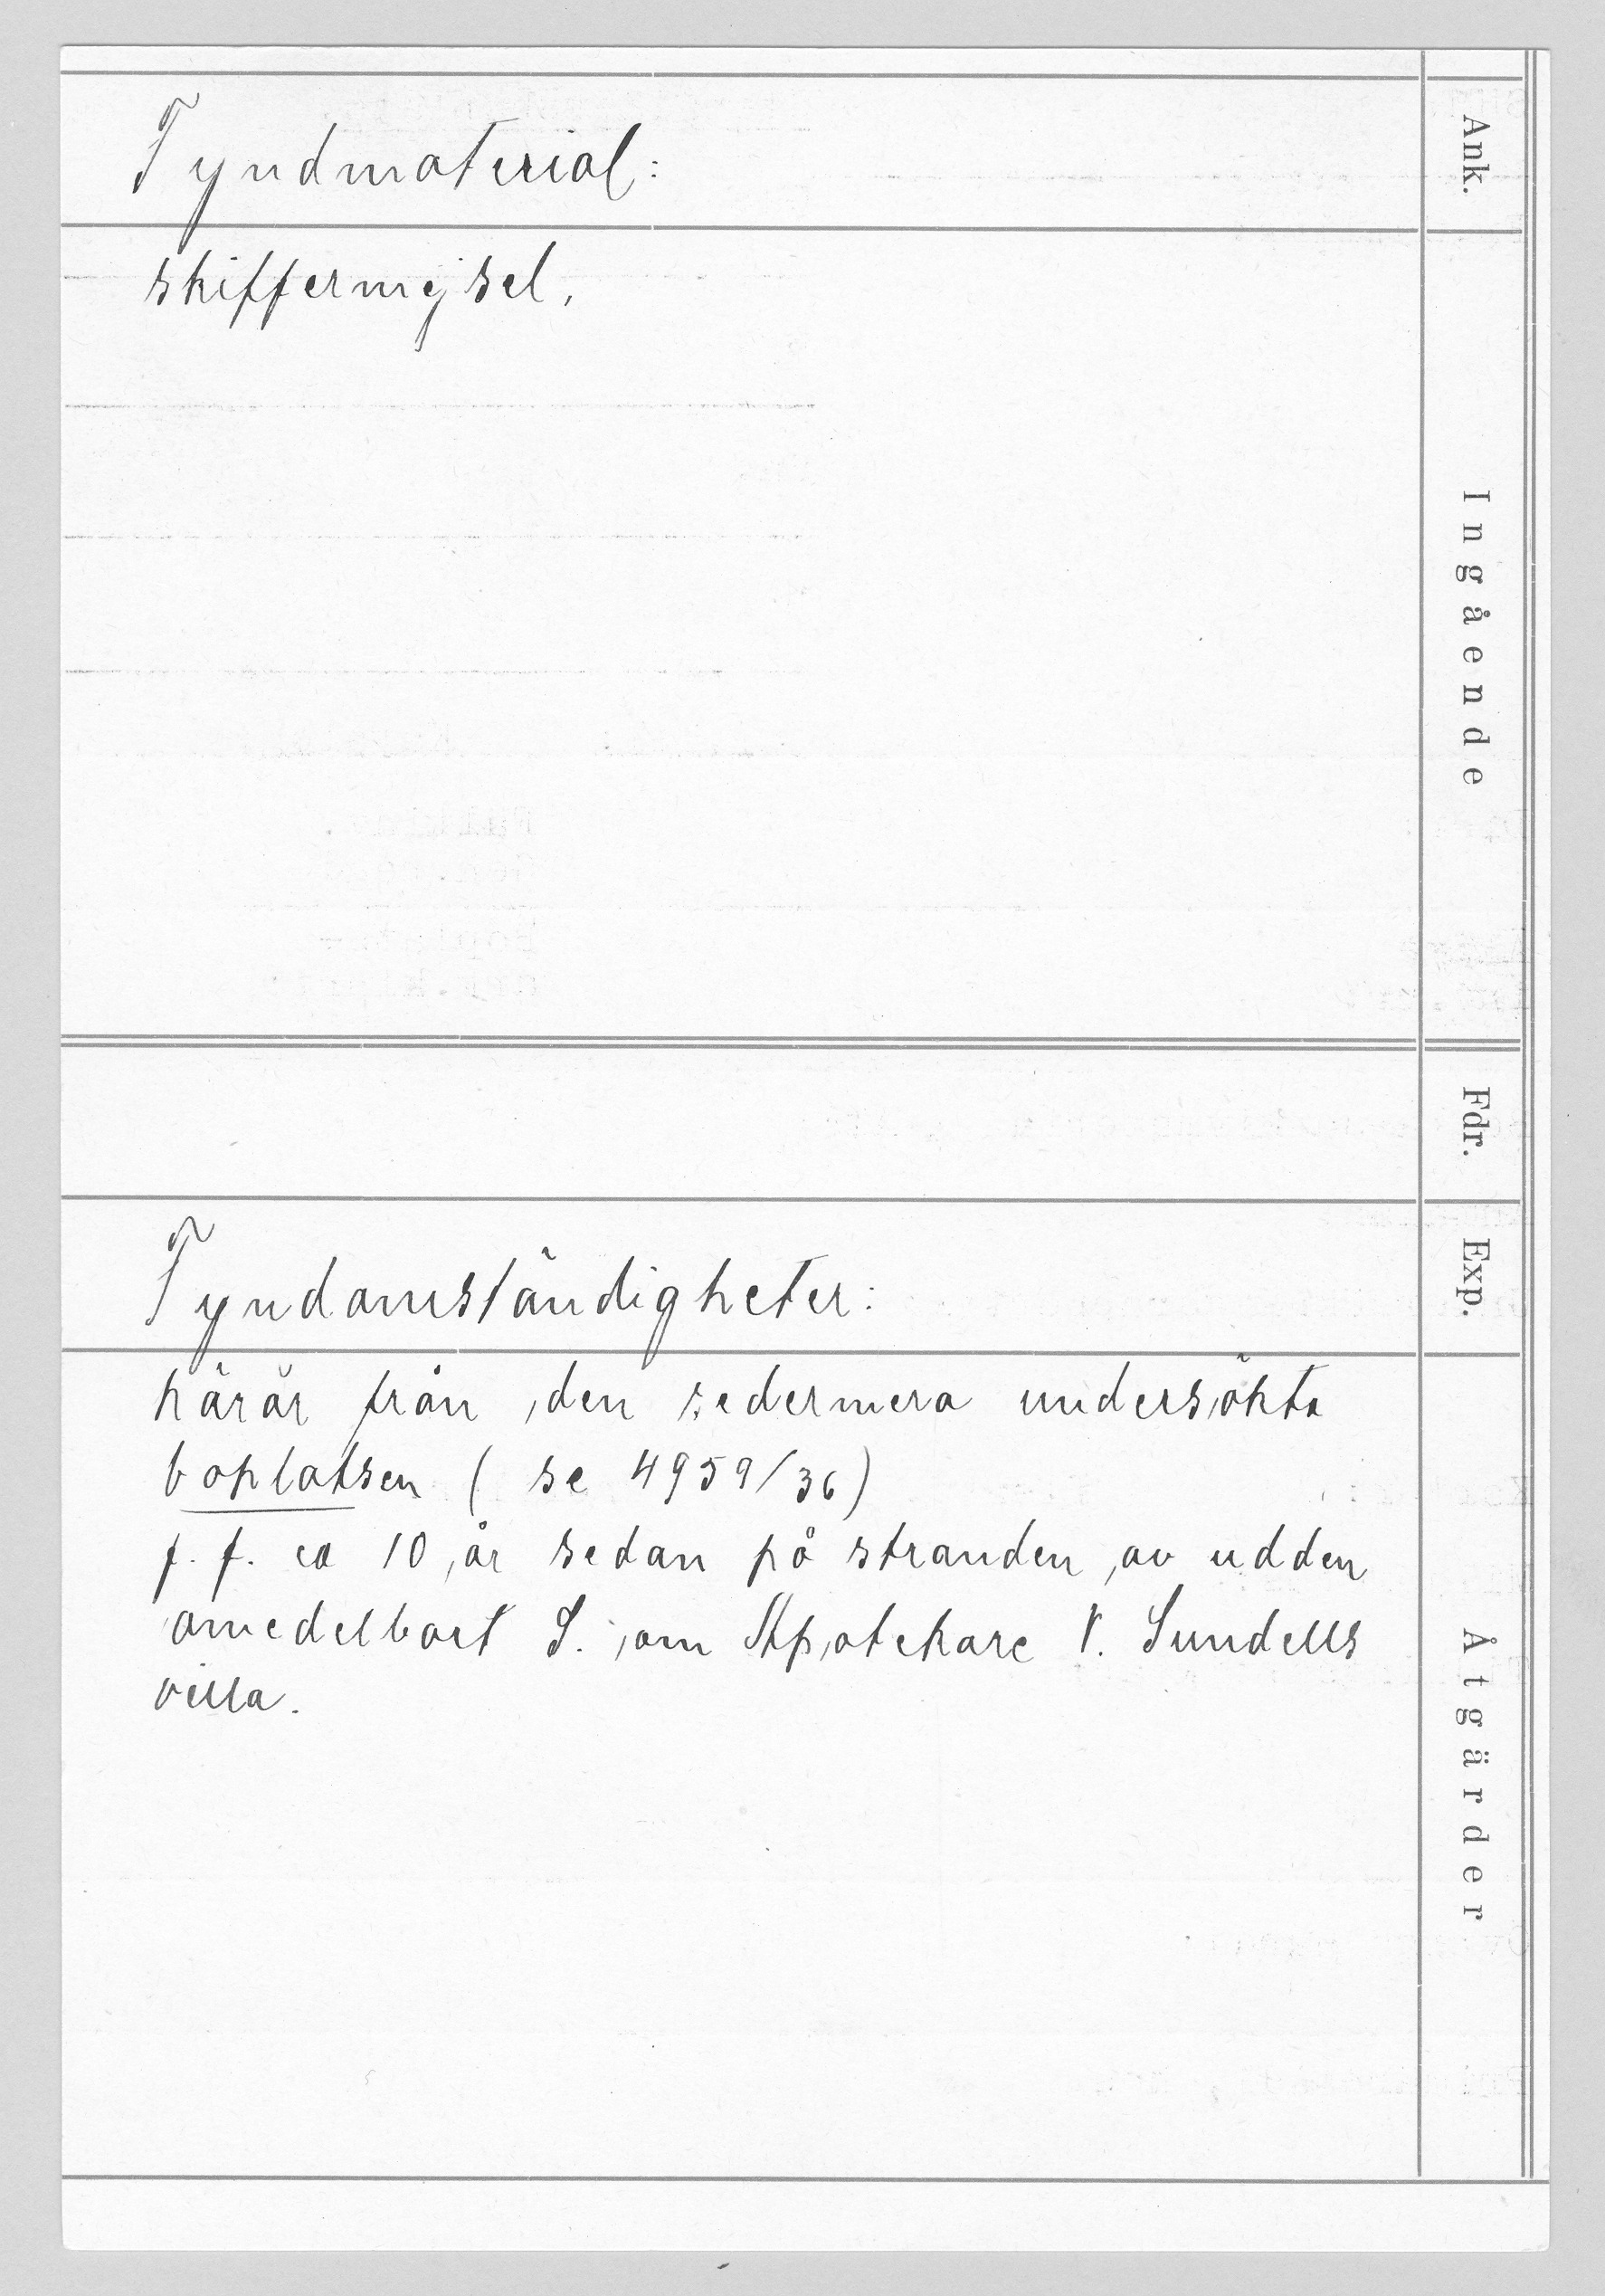 Fyndmaterial:
skiffermejsel.
Fyndomständigheter:
härör från den sedermera undersökta
boplatsen (se 4959/36)
f. f. ca 10 år sedan på stranden av udden
omedelbart S. om Apotekare V. Sundells
villa.
Ank.
Ingående
Fdr.
Exp.
Åtgärder